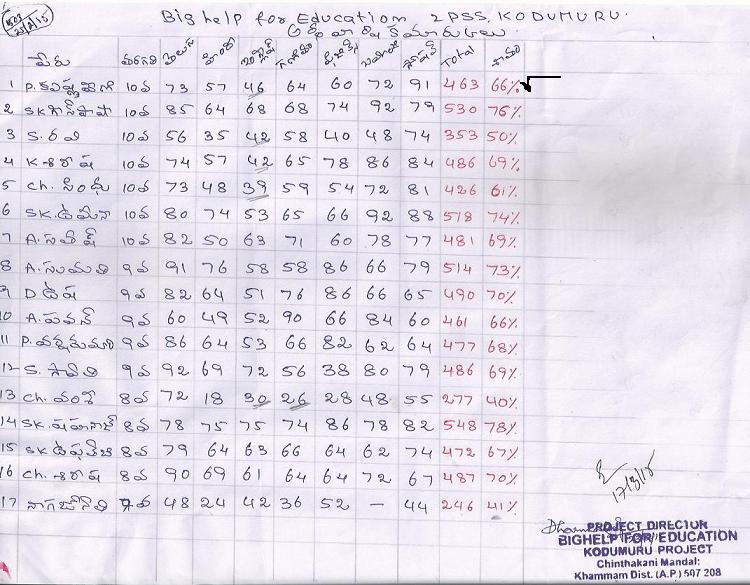 Big help for Education 2PSS, KODUMURU.
పేరు Total
1 10వ 73 57 46 64 60 72 91 463 66%
2 10వ 85 64 68 68 74 92 79 530 76%
3 S. రవి 10వ 56 35 42 58 40 48 74 353 50%
4 K. శిరీష 10వ 74 57 42 65 78 86 84 486 69%
5 Ch. సింధు 10వ 73 48 39 59 54 72 81 426 61%
6 SK. 10వ 80 74 53 65 66 92 88 518 74%
7 A. 10వ 82 50 63 71 60 78 77 481 69%
8 A. సుమతి 9వ 91 76 58 58 86 66 79 514 73%
9 D 9వ 82 64 51 76 86 66 65 490 70%
10 A. పవన్ 9వ 60 49 52 90 66 84 60 461 66%
11 P. 9వ 86 64 53 66 82 62 64 477 68%
12 S. 9వ 92 69 72 56 38 80 79 486 69%
13 Ch. వంశీ 8వ 72 18 30 26 28 48 55 277 40%
14 SK. 8వ 78 75 75 74 86 78 82 548 78%
15 SK 8వ 79 64 63 66 64 62 74 472 67%
16 Ch. శిరీష 8వ 90 69 61 64 64 72 67 487 70%
17 48 24 42 36 52 — 44 246 41%
17/3/15
PROJECT DIRECTOR
BIGHELP FOR EDUCATION
KODUMURU PROJECT
Chinthakani Mandal:
Khammam Dist. (A.P.) 507 208